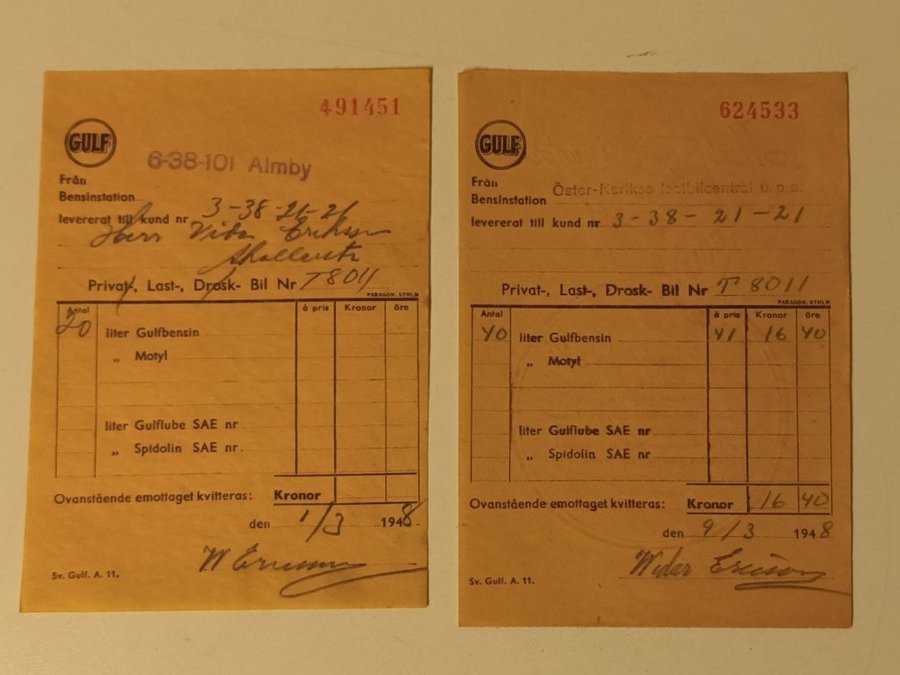 491451
GULF
6-38-101 Almby
Från
Bensinstation
levererat till kund nr 3-38-21-21
Herr Vidar Eriksson
Privat-, Last-, Drosk- Bil Nr T8011
PARAGON, STHLM
Antal à pris Kronor öre
20 liter Gulfbensin
„ Motyl
liter Gulflube SAE nr
„ Spidolin SAE nr
Ovanstående emottaget kvitteras: Kronor
den 1/3 1948
W Ericsson
Sv. Gulf. A. 11.
624533
GULF
Från
Bensinstation Öster-Närikes lastbilcentral u.p.a.
levererat till kund nr 3-38-21-21
Privat-, Last-, Drosk- Bil Nr T 8011
PARAGON, STHLM
Antal à pris Kronor öre
40 liter Gulfbensin 41 16 40
„ Motyl
liter Gulflube SAE nr
„ Spidolin SAE nr
Ovanstående emottaget kvitteras: Kronor 16 40
den 9/3 1948
Widar Ericson
Sv. Gulf. A. 11.